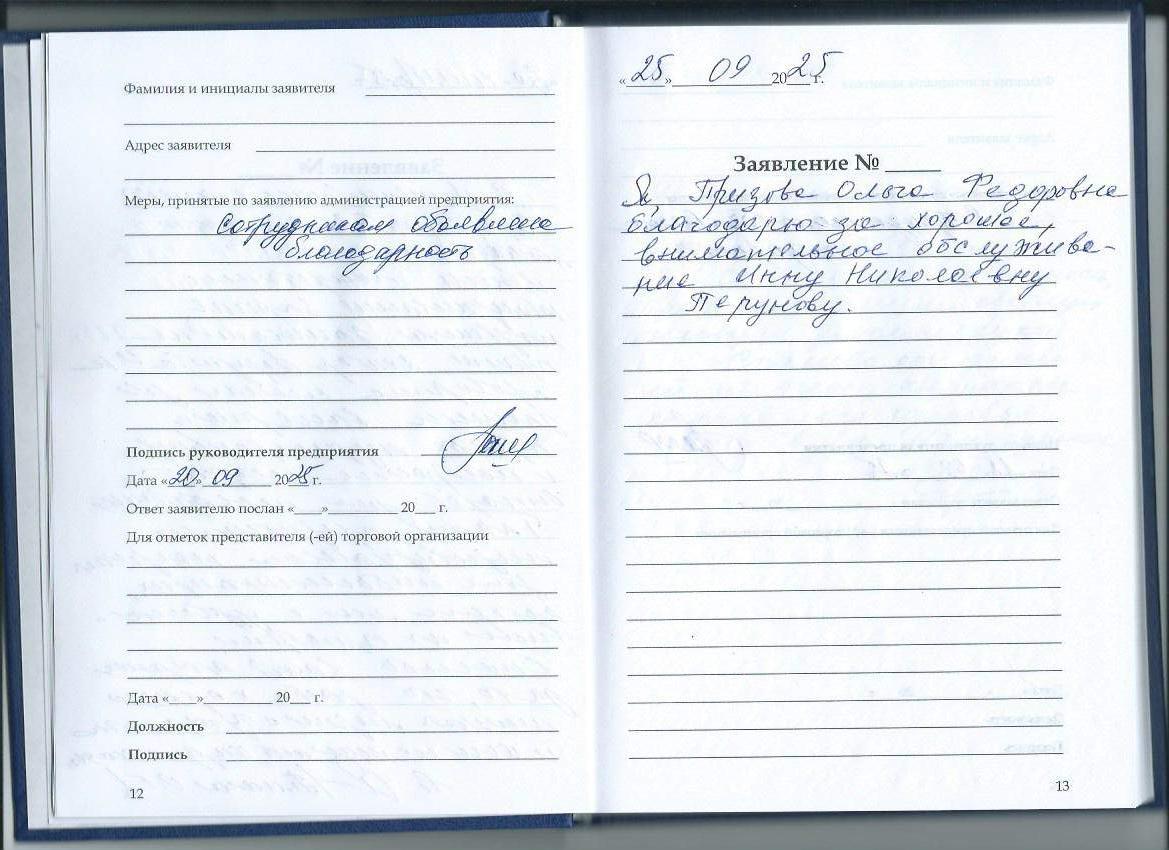 Фамилия и инициалы заявителя
Адрес заявителя
Меры, принятые по заявлению администрацией предприятия:
Сотрудникам объявлена
благодарность
Подпись руководителя предприятия
Дата «20» 09 2025 г.
Ответ заявителю послан «____»__________ 20___ г.
Для отметок представителя (-ей) торговой организации
Дата «____»__________ 20___ г.
Должность
Подпись
12
«25» 09 2025 г.
Заявление № _____
Я, Призова Ольга Федоровна
благодарю за хорошее,
внимательное обслужива-
ние Инну Николаевну
Перунову.
13